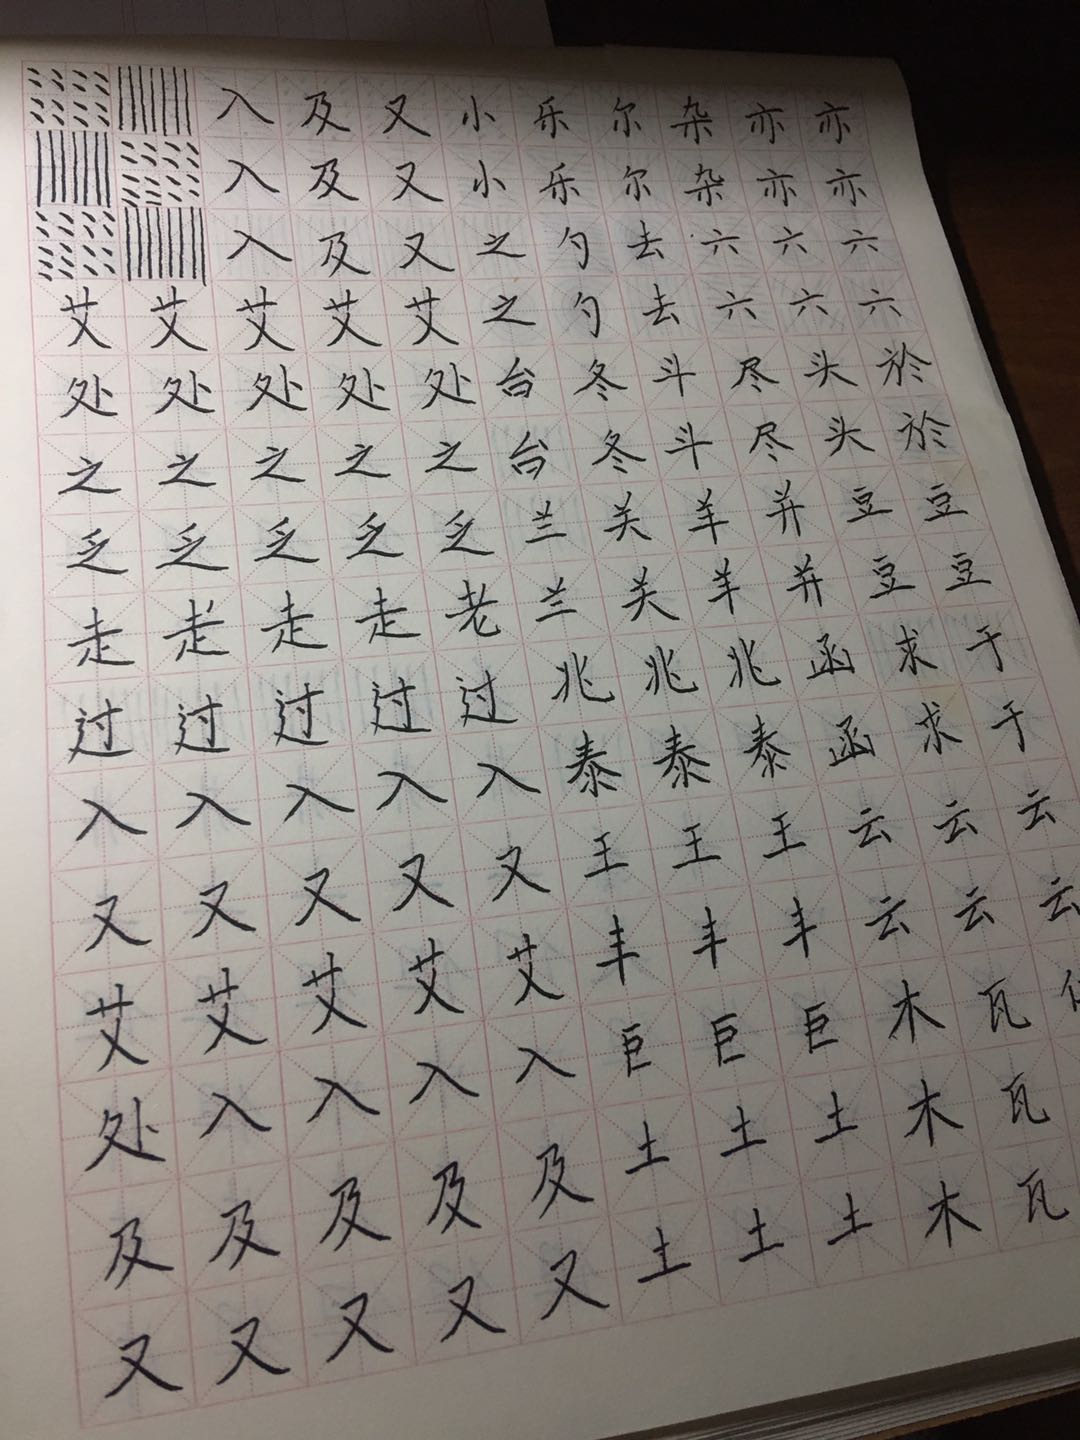 入 及 又 小 乐 尔 杂 亦 亦
入 及 又 小 乐 尔 杂 亦 亦
入 及 又 之 勺 去 六 六 六
艾 艾 艾 艾 艾 之 勺 去 六 六 六
处 处 处 处 处 台 冬 斗 尽 头 於
之 之 之 之 之 台 冬 斗 尽 头 於
乏 乏 乏 乏 乏 兰 关 羊 并 豆 豆
走 走 走 走 老 兰 关 羊 并 豆 豆
过 过 过 过 过 兆 兆 兆 函 求 于
入 入 入 入 入 泰 泰 泰 函 求 于
又 又 又 又 又 王 王 王 云 云 云
艾 艾 艾 艾 艾 丰 丰 丰 云 云 云
处 入 入 入 入 巨 巨 巨 木 瓦
及 及 及 及 及 土 土 土 木 瓦
又 又 又 又 又 土 土 土 木 瓦